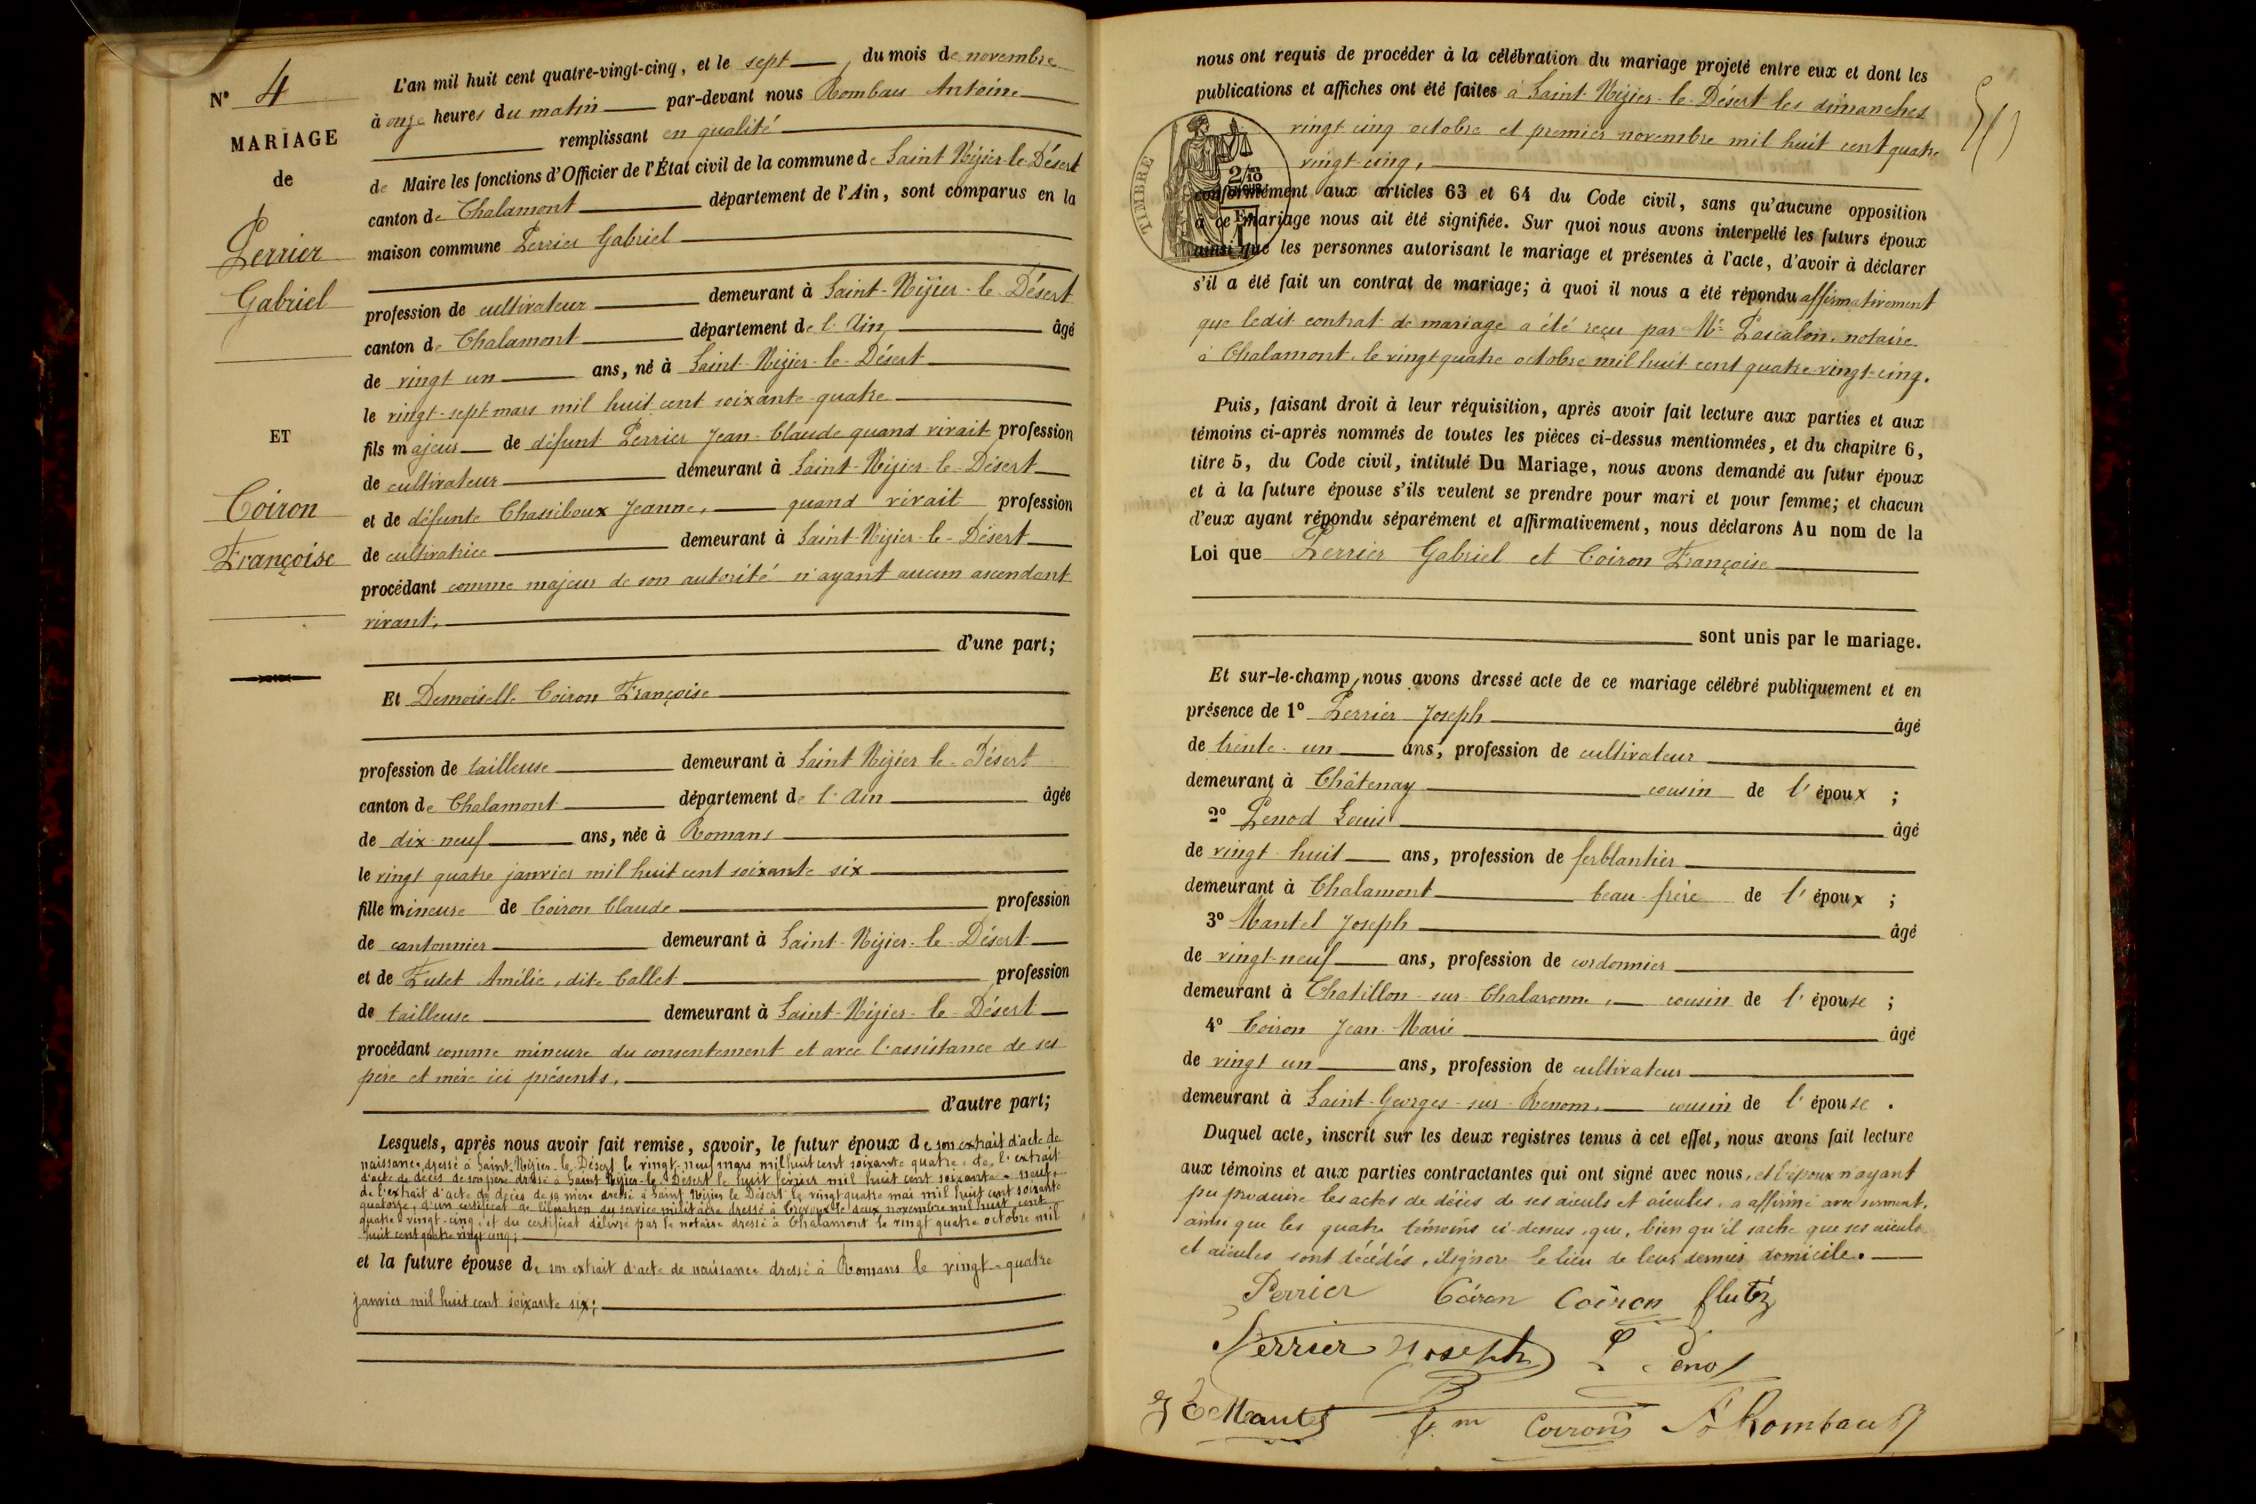 N° 4
MARIAGE
de
Perrier
Gabriel
ET
Coiron
Françoise
L'an mil huit cent quatre-vingt-cinq, et le sept, du mois de novembre
à onze heures du matin par-devant nous Rombau Antoine
remplissant en qualité
de Maire les fonctions d'Officier de l'État civil de la commune de Saint Nizier-le-Désert
canton de Chalamont département de l'Ain, sont comparus en la
maison commune Perrier Gabriel
profession de cultivateur demeurant à Saint-Nizier-le-Désert
canton de Chalamont département de l'Ain âgé
de vingt un ans, né à Saint-Nizier-le-Désert
le vingt-sept mars mil huit cent soixante-quatre
fils majeur de défunt Perrier Jean-Claude quand vivait profession
de cultivateur demeurant à Saint-Nizier-le-Désert
et de défunte Chassiboux Jeanne, quand vivait profession
de cultivatrice demeurant à Saint-Nizier-le-Désert
procédant comme majeur de son autorité n'ayant aucun ascendant
vivant,
d'une part;
Et Demoiselle Coiron Françoise
profession de tailleuse demeurant à Saint Nizier le-Désert
canton de Chalamont département de l'Ain âgée
de dix-neuf ans, née à Romans
le vingt quatre janvier mil huit cent soixante six
fille mineure de Coiron Claude profession
de cantonnier demeurant à Saint-Nizier-le-Désert
et de Futet Amélie, dite Callet profession
de tailleuse demeurant à Saint-Nizier-le-Désert
procédant comme mineure du consentement et avec l'assistance de ses
père et mère ici présents.
d'autre part;
Lesquels, après nous avoir fait remise, savoir, le futur époux de son extrait d'acte de
naissance dressé à Saint-Nizier-le-Désert le vingt-neuf mars mil huit cent soixante quatre, de l'extrait
d'acte de décès de son père dressé à Saint Nizier-le-Désert le huit février mil huit cent soixante-neuf,
de l'extrait d'acte de décès de sa mère dressé à Saint Nizier le Désert le vingt quatre mai mil huit cent soixante
quatorze, d'un certificat de libération du service militaire dressé à Trévoux le deux novembre mil huit cent
quatre-vingt-cinq, et du certificat délivré par le notaire dressé à Chalamont le vingt quatre octobre mil
huit cent quatre vingt cinq;
et la future épouse de son extrait d'acte de naissance dressé à Romans le vingt-quatre
janvier mil huit cent soixante six;
nous ont requis de procéder à la célébration du mariage projeté entre eux et dont les
publications et affiches ont été faites à Saint-Nizier-le-Désert les dimanches
vingt cinq octobre et premier novembre mil huit cent quatre
vingt-cinq,
TIMBRE
conformément aux articles 63 et 64 du Code civil, sans qu'aucune opposition
à ce mariage nous ait été signifiée. Sur quoi nous avons interpellé les futurs époux
ainsi que les personnes autorisant le mariage et présentes à l'acte, d'avoir à déclarer
s'il a été fait un contrat de mariage; à quoi il nous a été répondu affirmativement
que ledit contrat de mariage a été reçu par Me Pascalon, notaire
à Chalamont, le vingt quatre octobre mil huit cent quatre-vingt-cinq.
Puis, faisant droit à leur réquisition, après avoir fait lecture aux parties et aux
témoins ci-après nommés de toutes les pièces ci-dessus mentionnées, et du chapitre 6,
titre 5, du Code civil, intitulé Du Mariage, nous avons demandé au futur époux
et à la future épouse s'ils veulent se prendre pour mari et pour femme; et chacun
d'eux ayant répondu séparément et affirmativement, nous déclarons Au nom de la
Loi que Perrier Gabriel et Coiron Françoise
sont unis par le mariage.
Et sur-le-champ, nous avons dressé acte de ce mariage célébré publiquement et en
présence de 1° Perrier Joseph âgé
de trente-un ans, profession de cultivateur
demeurant à Châtenay cousin de l'époux ;
2° Penod Louis âgé
de vingt huit ans, profession de ferblantier
demeurant à Chalamont beau-frère de l'époux ;
3° Mantel Joseph âgé
de vingt-neuf ans, profession de cordonnier
demeurant à Chatillon-sur-Chalaronne, cousin de l'épouse ;
4° Coiron Jean-Marie âgé
de vingt un ans, profession de cultivateur
demeurant à Saint-Georges-sur-Renom, cousin de l'épouse.
Duquel acte, inscrit sur les deux registres tenus à cet effet, nous avons fait lecture
aux témoins et aux parties contractantes qui ont signé avec nous, et l'époux n'ayant
pu produire les actes de décès de ses aïeuls et aïeules, a affirmé avec serment,
ainsi que les quatre témoins ci-dessus, que, bien qu'il sache que ses aïeuls
et aïeules sont décédés, il ignore le lieu de leur dernier domicile.
Perrier Coiron Coiron
Perrier Joseph L Penod
Mantel Coiron A Rombau